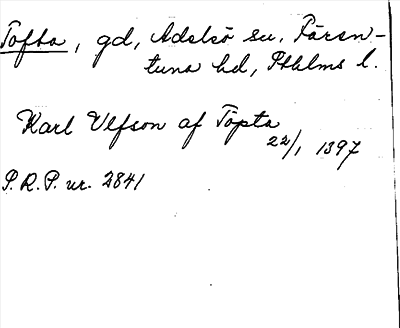 Tofta, gd, Adelsö sn, Fären-
tuna hd, Sthlms l.
Karl Ulfson af Töpta
22/1 1397
S.R.P. nr. 2841